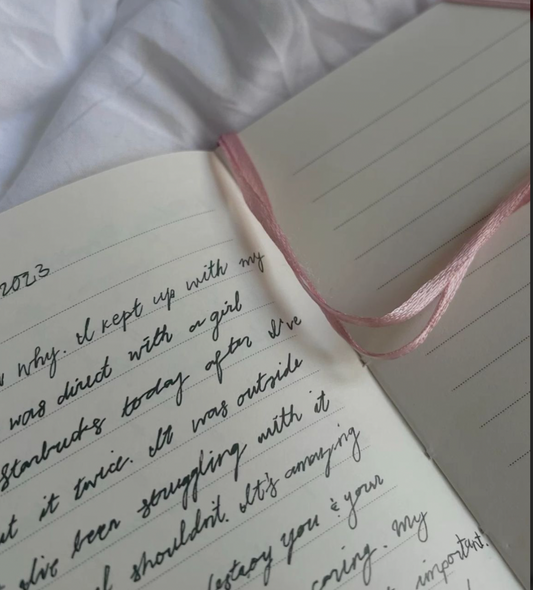 2023
why. I kept up with my
was direct with a girl
Starbucks today after I've
it twice. It was outside
I've been struggling with it
I shouldn't. It's amazing
destroy you & your
caring. My
important.